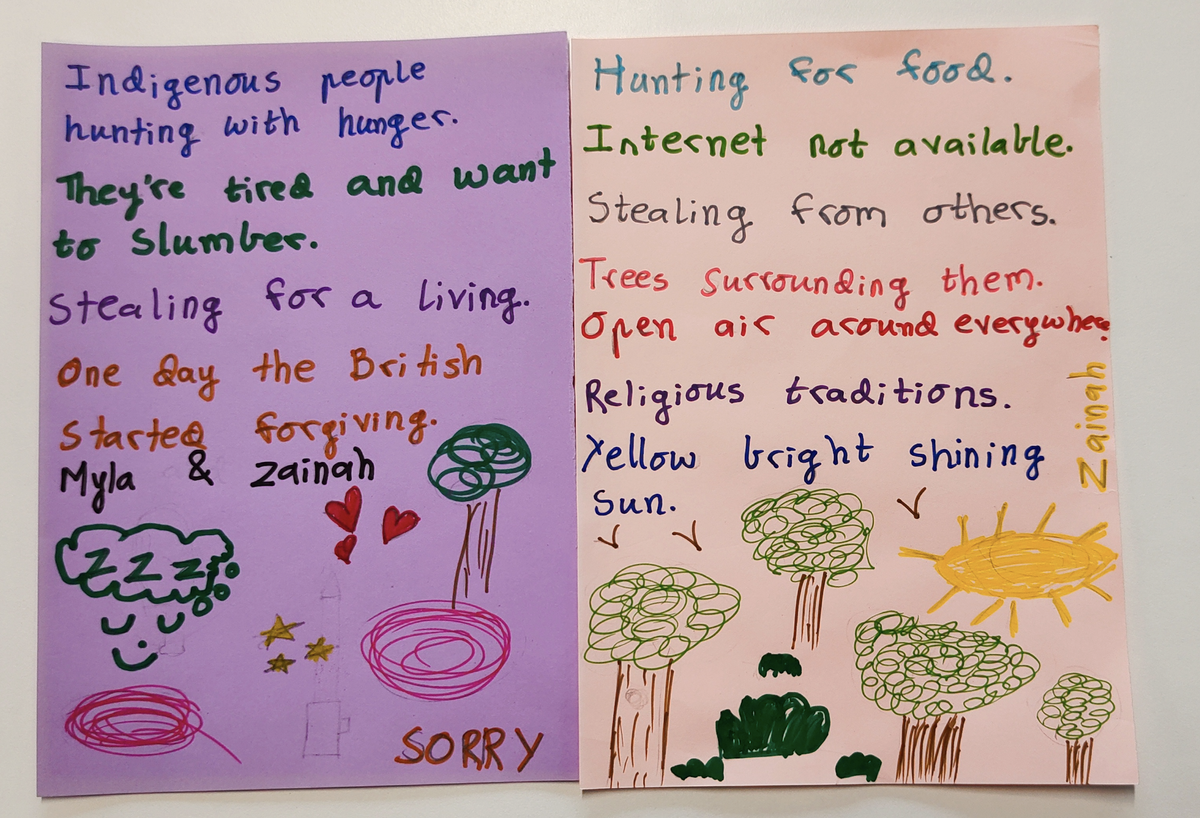 Indigenous people
hunting with hunger.
They're tired and want
to slumber.
Stealing for a living.
One day the British
Started forgiving.
Myla & Zainah
ZZZ
SORRY
Hunting for food.
Internet not available.
Stealing from others.
Trees surrounding them.
Open air around everywhere.
Religious traditions.
Yellow bright shining
sun.
Zainah